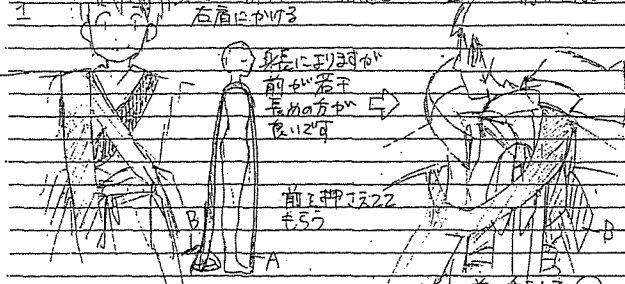 1
右肩にかける
身長によりますが
前が若干
長めの方が
良いです
前を押さえてて
もらう
B
A
B